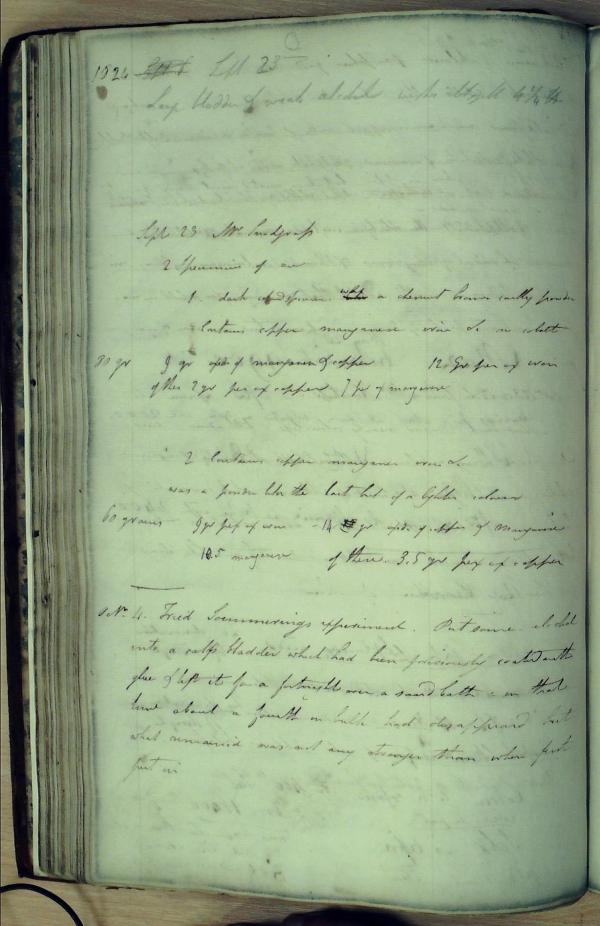 1824 Sept 23
Large bladder of weak alcohol
Sept 23 Mr
2 Specimens of ore
1 dark a chesnut brown earthy powder
Contains copper manganese iron &c no cobalt
80 gr 9 gr oxd of manganese & copper 12 gr per ox iron
of the 2 gr per ox copper 7 gr of manganese
2 Contains copper manganese iron &c
was a powder like the last but of a lighter colour
60 grains 9 gr per ox iron 14 gr oxd of copper & manganese
10.5 manganese of these 3.5 gr per ox copper
Nr. 4. Tried Soemmerings experiment. Put some alcohol
into a calfs bladder which had been previously coated with
glue & left it for a fortnight over a sand bath - in that
time about a fourth in bulk had disappeared but
what remained was not any stronger than when first
put in